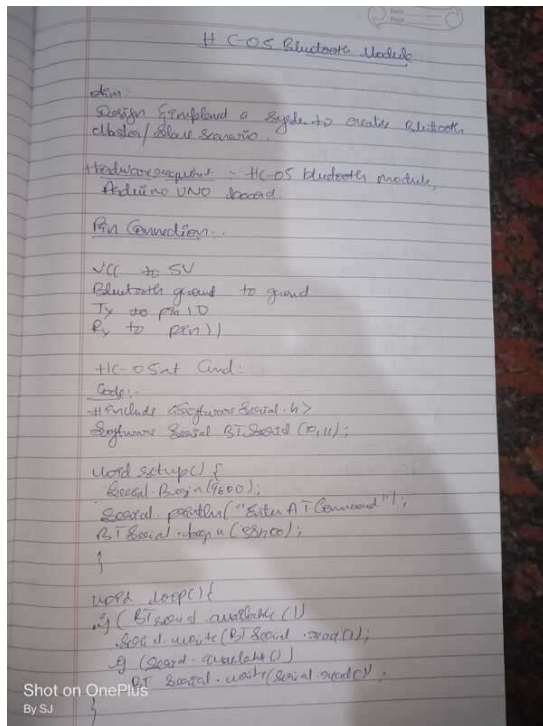 H C-05 Bluetooth Module
Aim:
Design & implement a System to creating Bluetooth
Master/Slave Scenario.
Hardware :- HC-05 bluetooth module,
Arduino UNO board
Pin Connection:-
VCC to 5V
Bluetooth ground to ground
Tx to pin 10
Rx to pin 11
HC-05 at Cmd:
Code:-
#include <Software Serial.h>
Software Serial BT Serial (10,11);
void setup() {
Serial.Begin(9600);
Serial.println("Enter AT Command");
BT Serial.begin(38400);
}
void loop(){
if (BT Serial.available()
Serial.write(BT Serial.read());
if (Serial.available()
BT Serial.write(Serial.read());
}
Shot on OnePlus
By SJ